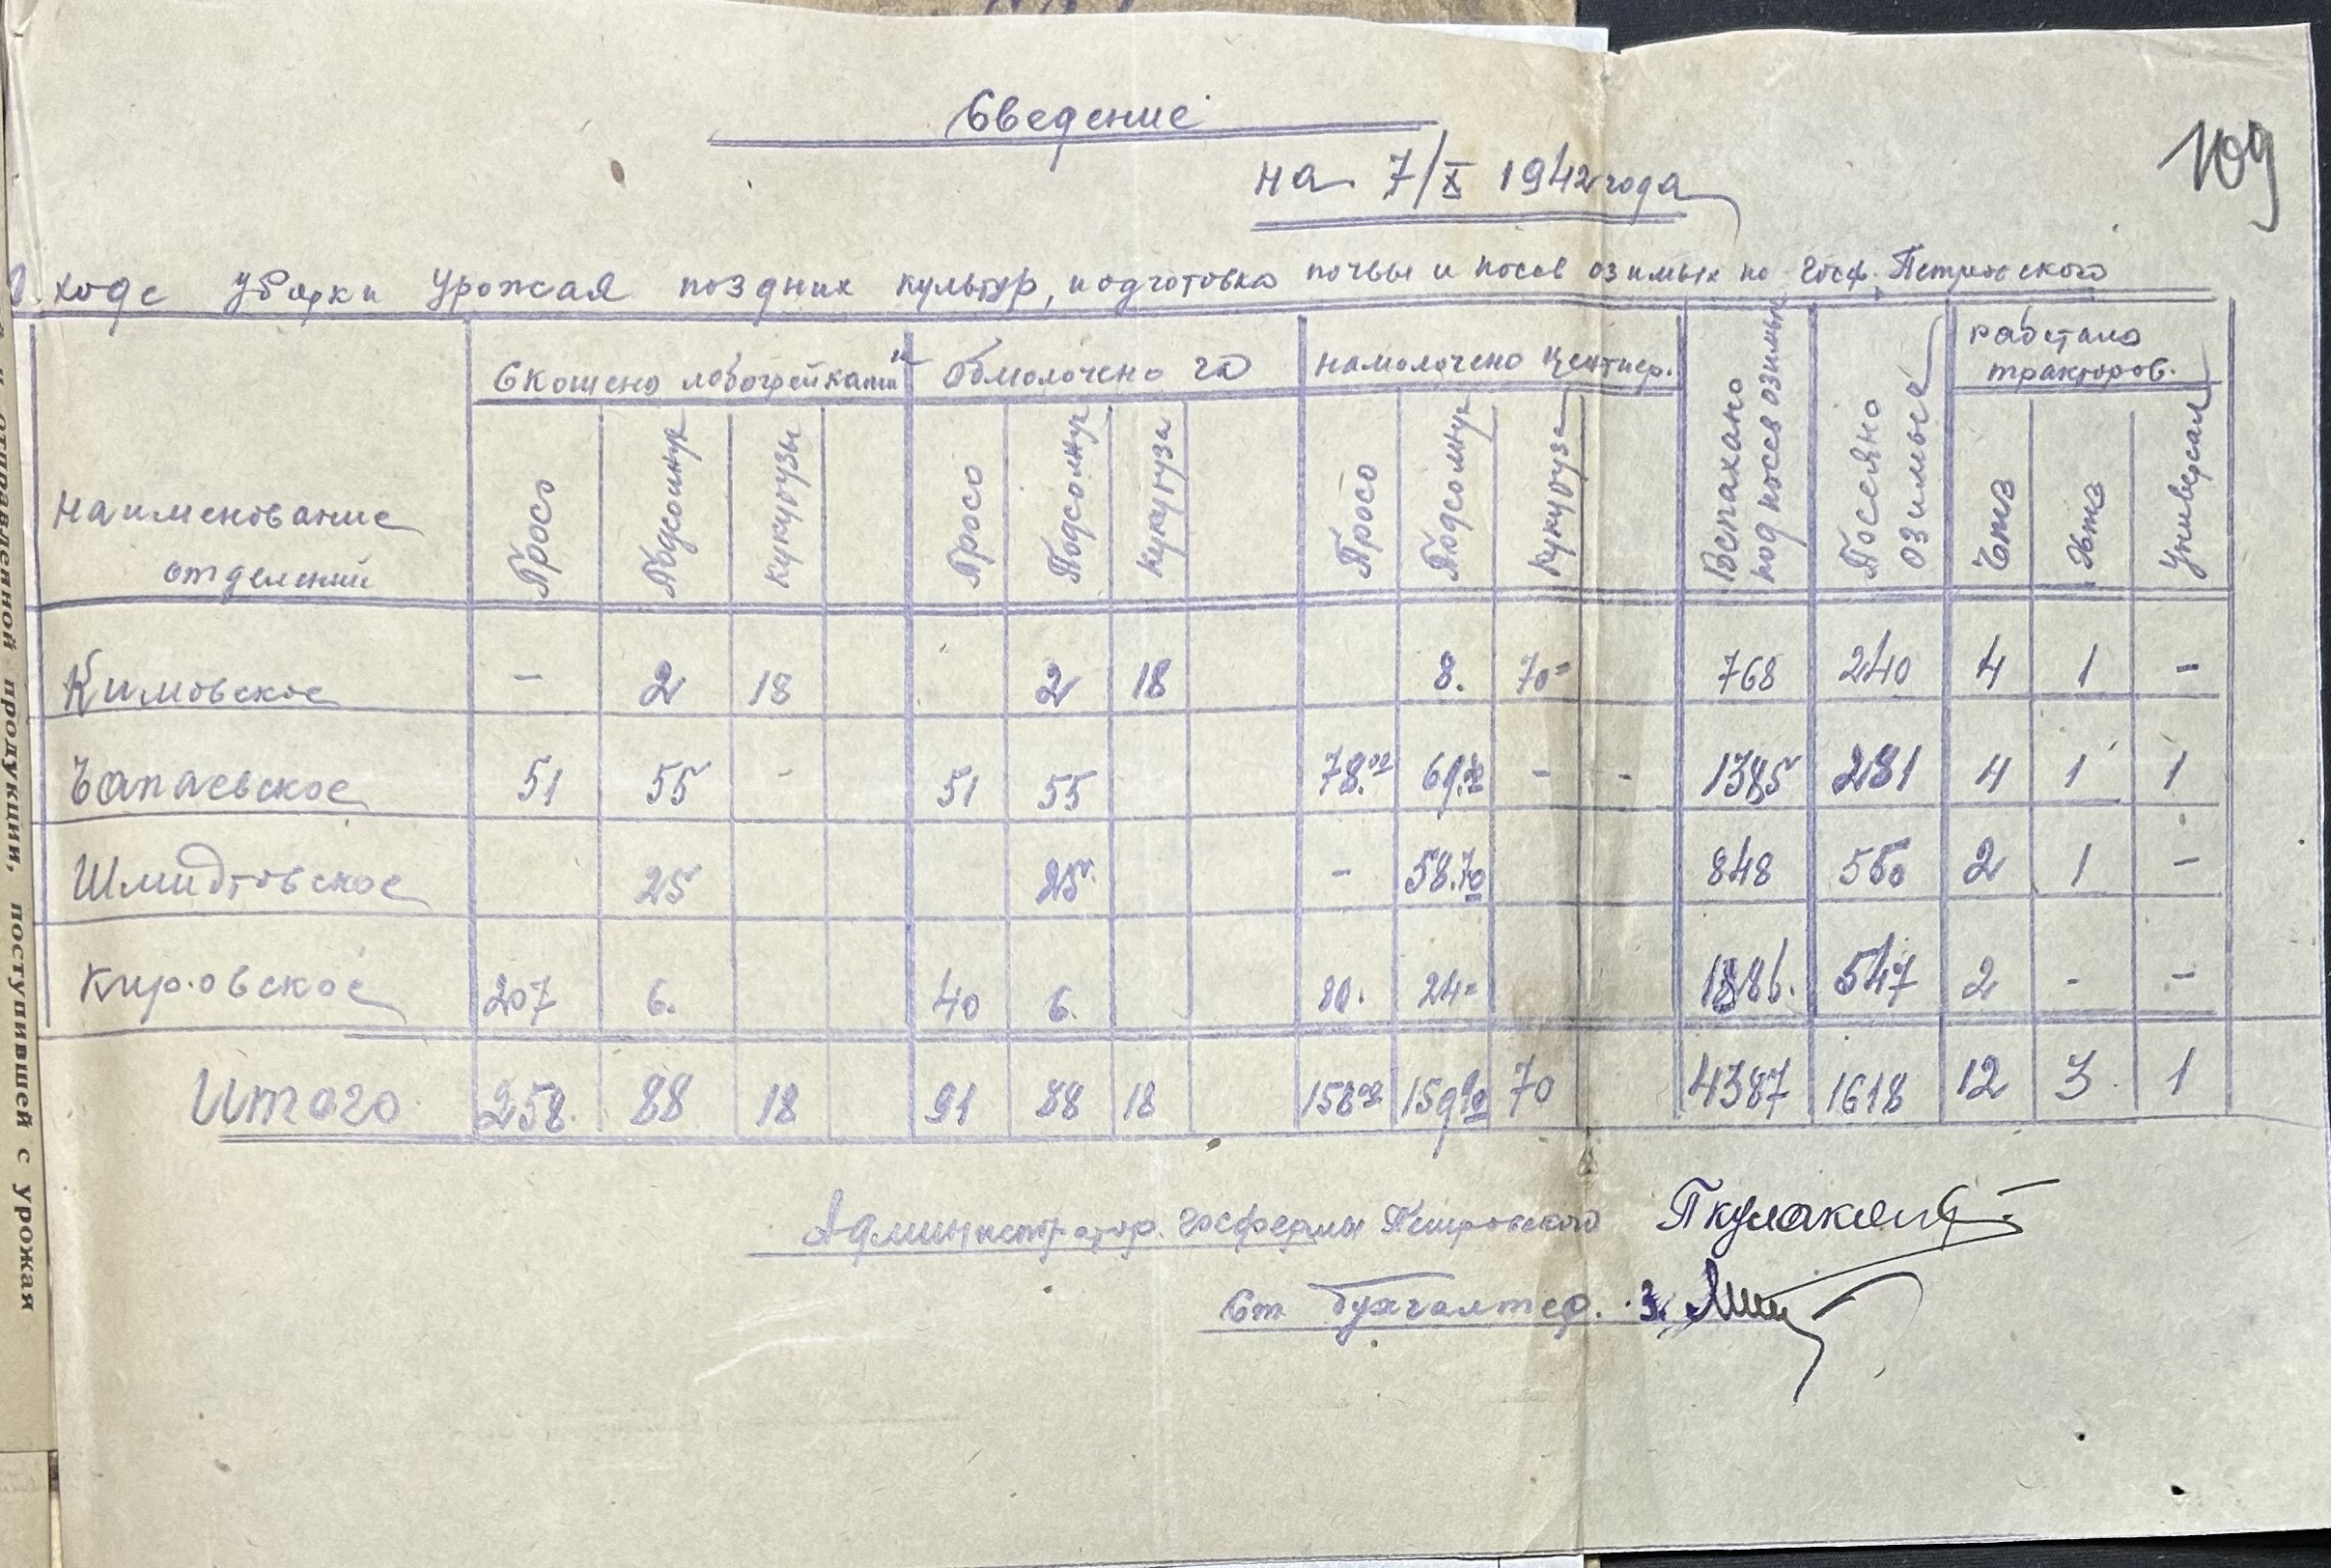 109
Сведение
на 7/X 1942 года
О ходе уборки урожая поздних культур, подготовка почвы и посев озимых по госф. Петровского
Наименование отделений | Скошено лобогрейками | Обмолочено га | Намолочено центнер. | Вспахано под посев озимых | Посеяно озимых | Работало тракторов.
Просо | Подсолнух | Кукурузы | Просо | Подсолнух | Кукуруза | Просо | Подсолнух | Кукуруза | Чтз | Хтз | Универсал
Кимовское | - | 2 | 18 | | 2 | 18 | | 8. | 70= | 768 | 240 | 4 | 1 | -
Чапаевское | 51 | 55 | - | 51 | 55 | | 78.02 | 69.20 | - | - | 1385 | 281 | 4 | 1 | 1
Шмидтовское | | 25 | | | 25 | | - | 58.70 | | 848 | 550 | 2 | 1 | -
Кировское | 207 | 6. | | 40 | 6. | | 80. | 24= | | 1386. | 547 | 2 | - | -
Итого | 258. | 88 | 18 | 91 | 88 | 18 | 158 02 | 159 90 | 70 | 4387 | 1618 | 12 | 3 | 1
Администратор. госфермы Петровского
Ст бухгалтер. З.
отправленной продукции, поступившей с урожая